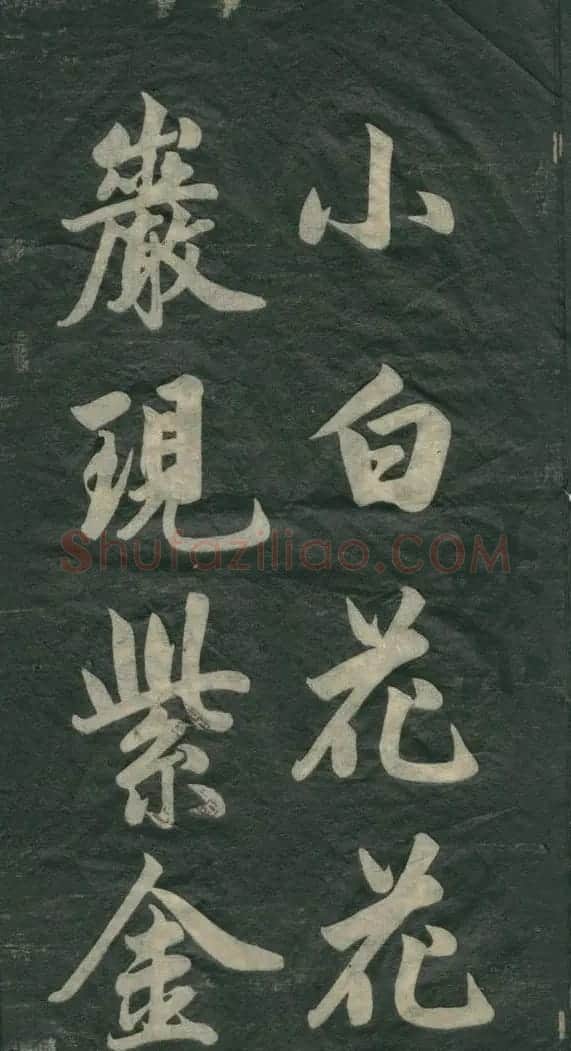 小白花花
巖現紫金
Shufaziliao.COM